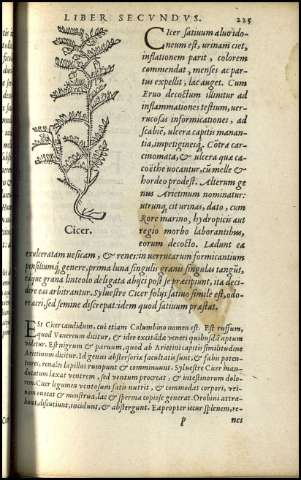 LIBER SECVNDVS. 225
CIcer satiuum aluo ido-
neum est, urinam ciet,
inflationem parit, colorem
commendat, menses ac par-
tus expellit, lac auget. Cum
Eruo decoctum illinitur ad
inflammationes testium, uer-
rucosas informicationes, ad
scabiē, ulcera capitis manan-
tia, impetigines. Cōtra car-
cinomata, & ulcera quæ ca-
coëthe uocantur, cū melle &
hordeo prodest. Alterum ge
nus Arietinum nominatur:
utrunq. ciet urinas, dato, cum
Rore marino, hydropicis aut
regio morbo laborantibus,
eorum decocto. Lædunt ea
Cicer.
exulceratam uesicam, & renes: in uerrucarum formicantium
genere, prima luna singulis granis singulas tangūt,
grana linteolo deligata abijci post se præcipiunt, ita deci-
dere eas arbitrantur. Syluestre Cicer folijs satiuo simile est, odo-
re acri, sed semine discrepat: idem quod satiuum præstat.
ESt Cicer candidum, cui etiam Columbino nomen est. Est russum,
quod Venereum dicitur,
Arietinum dicitur. Id genus abstersoria facultate sunt, &
renalis lapillos rumpunt & comminuunt. Syluestre Cicer
laxat uentrem,
Cicer legumen uentosum satis nutrit, & commodat corpori,
& menstrua, lac & sperma copiose generat. Orobini
incidunt, & abstergunt. Eapropter iecur, splenem, re-
p nes